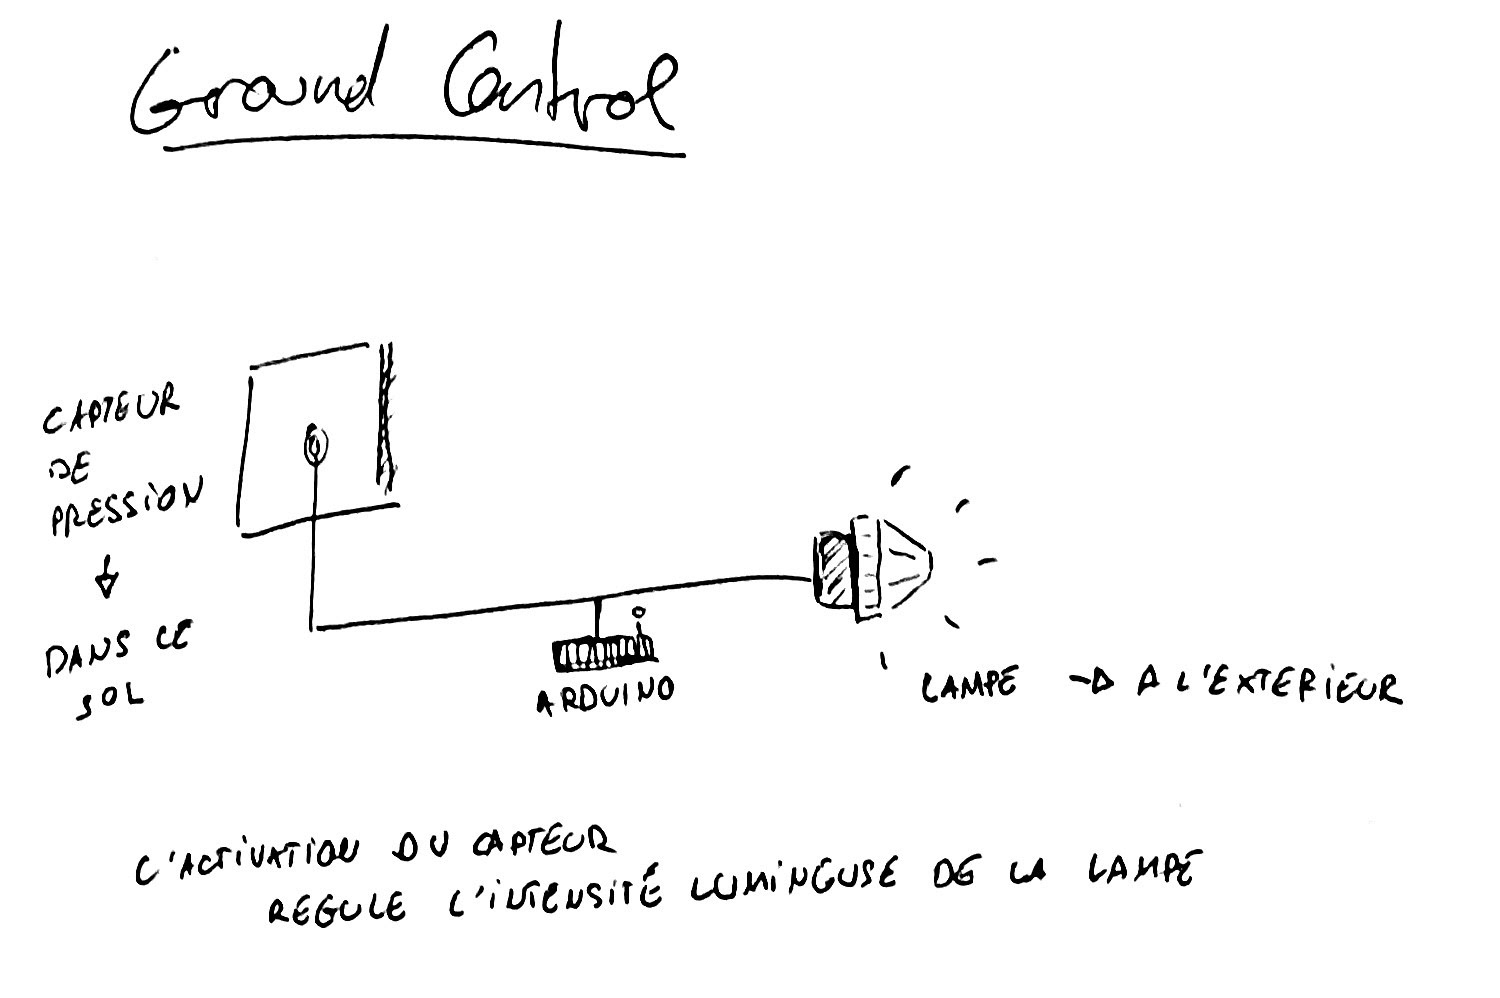 Ground Control
CAPTEUR
DE
PRESSION
↓
DANS LE
SOL
ARDUINO
LAMPE → A L'EXTERIEUR
L'ACTIVATION DU CAPTEUR
REGULE L'INTENSITÉ LUMINEUSE DE LA LAMPE